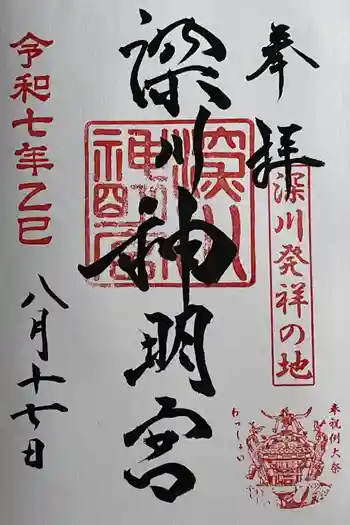 奉拝
深川発祥の地
奉祝例大祭
わっしょい
深川神明宮
令和七年乙巳
八月十七日